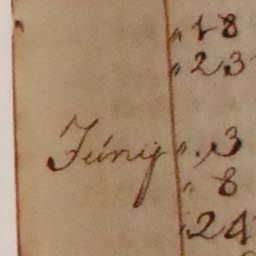 " 18
" 23
Júny " 3
" 8
" 24